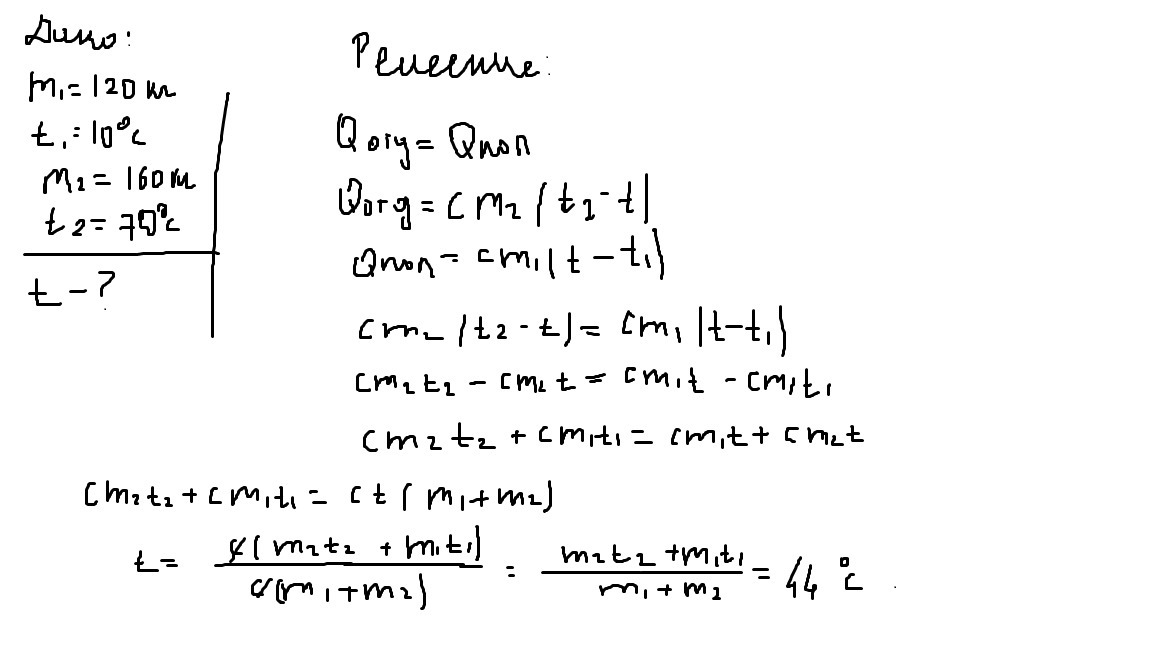 Дано:
m₁ = 120 кг
t₁ = 10°C
m₂ = 160 кг
t₂ = 70°C
t - ?
Решение:
Qотg = Qпол
Qотg = cm₂(t₂ - t)
Qпол = cm₁(t - t₁)
cm₂(t₂ - t) = cm₁(t - t₁)
cm₂t₂ - cm₂t = cm₁t - cm₁t₁
cm₂t₂ + cm₁t₁ = cm₁t + cm₂t
cm₂t₂ + cm₁t₁ = ct(m₁ + m₂)
t = c(m₂t₂ + m₁t₁) / c(m₁ + m₂) = m₂t₂ + m₁t₁ / m₁ + m₂ = 44 °C